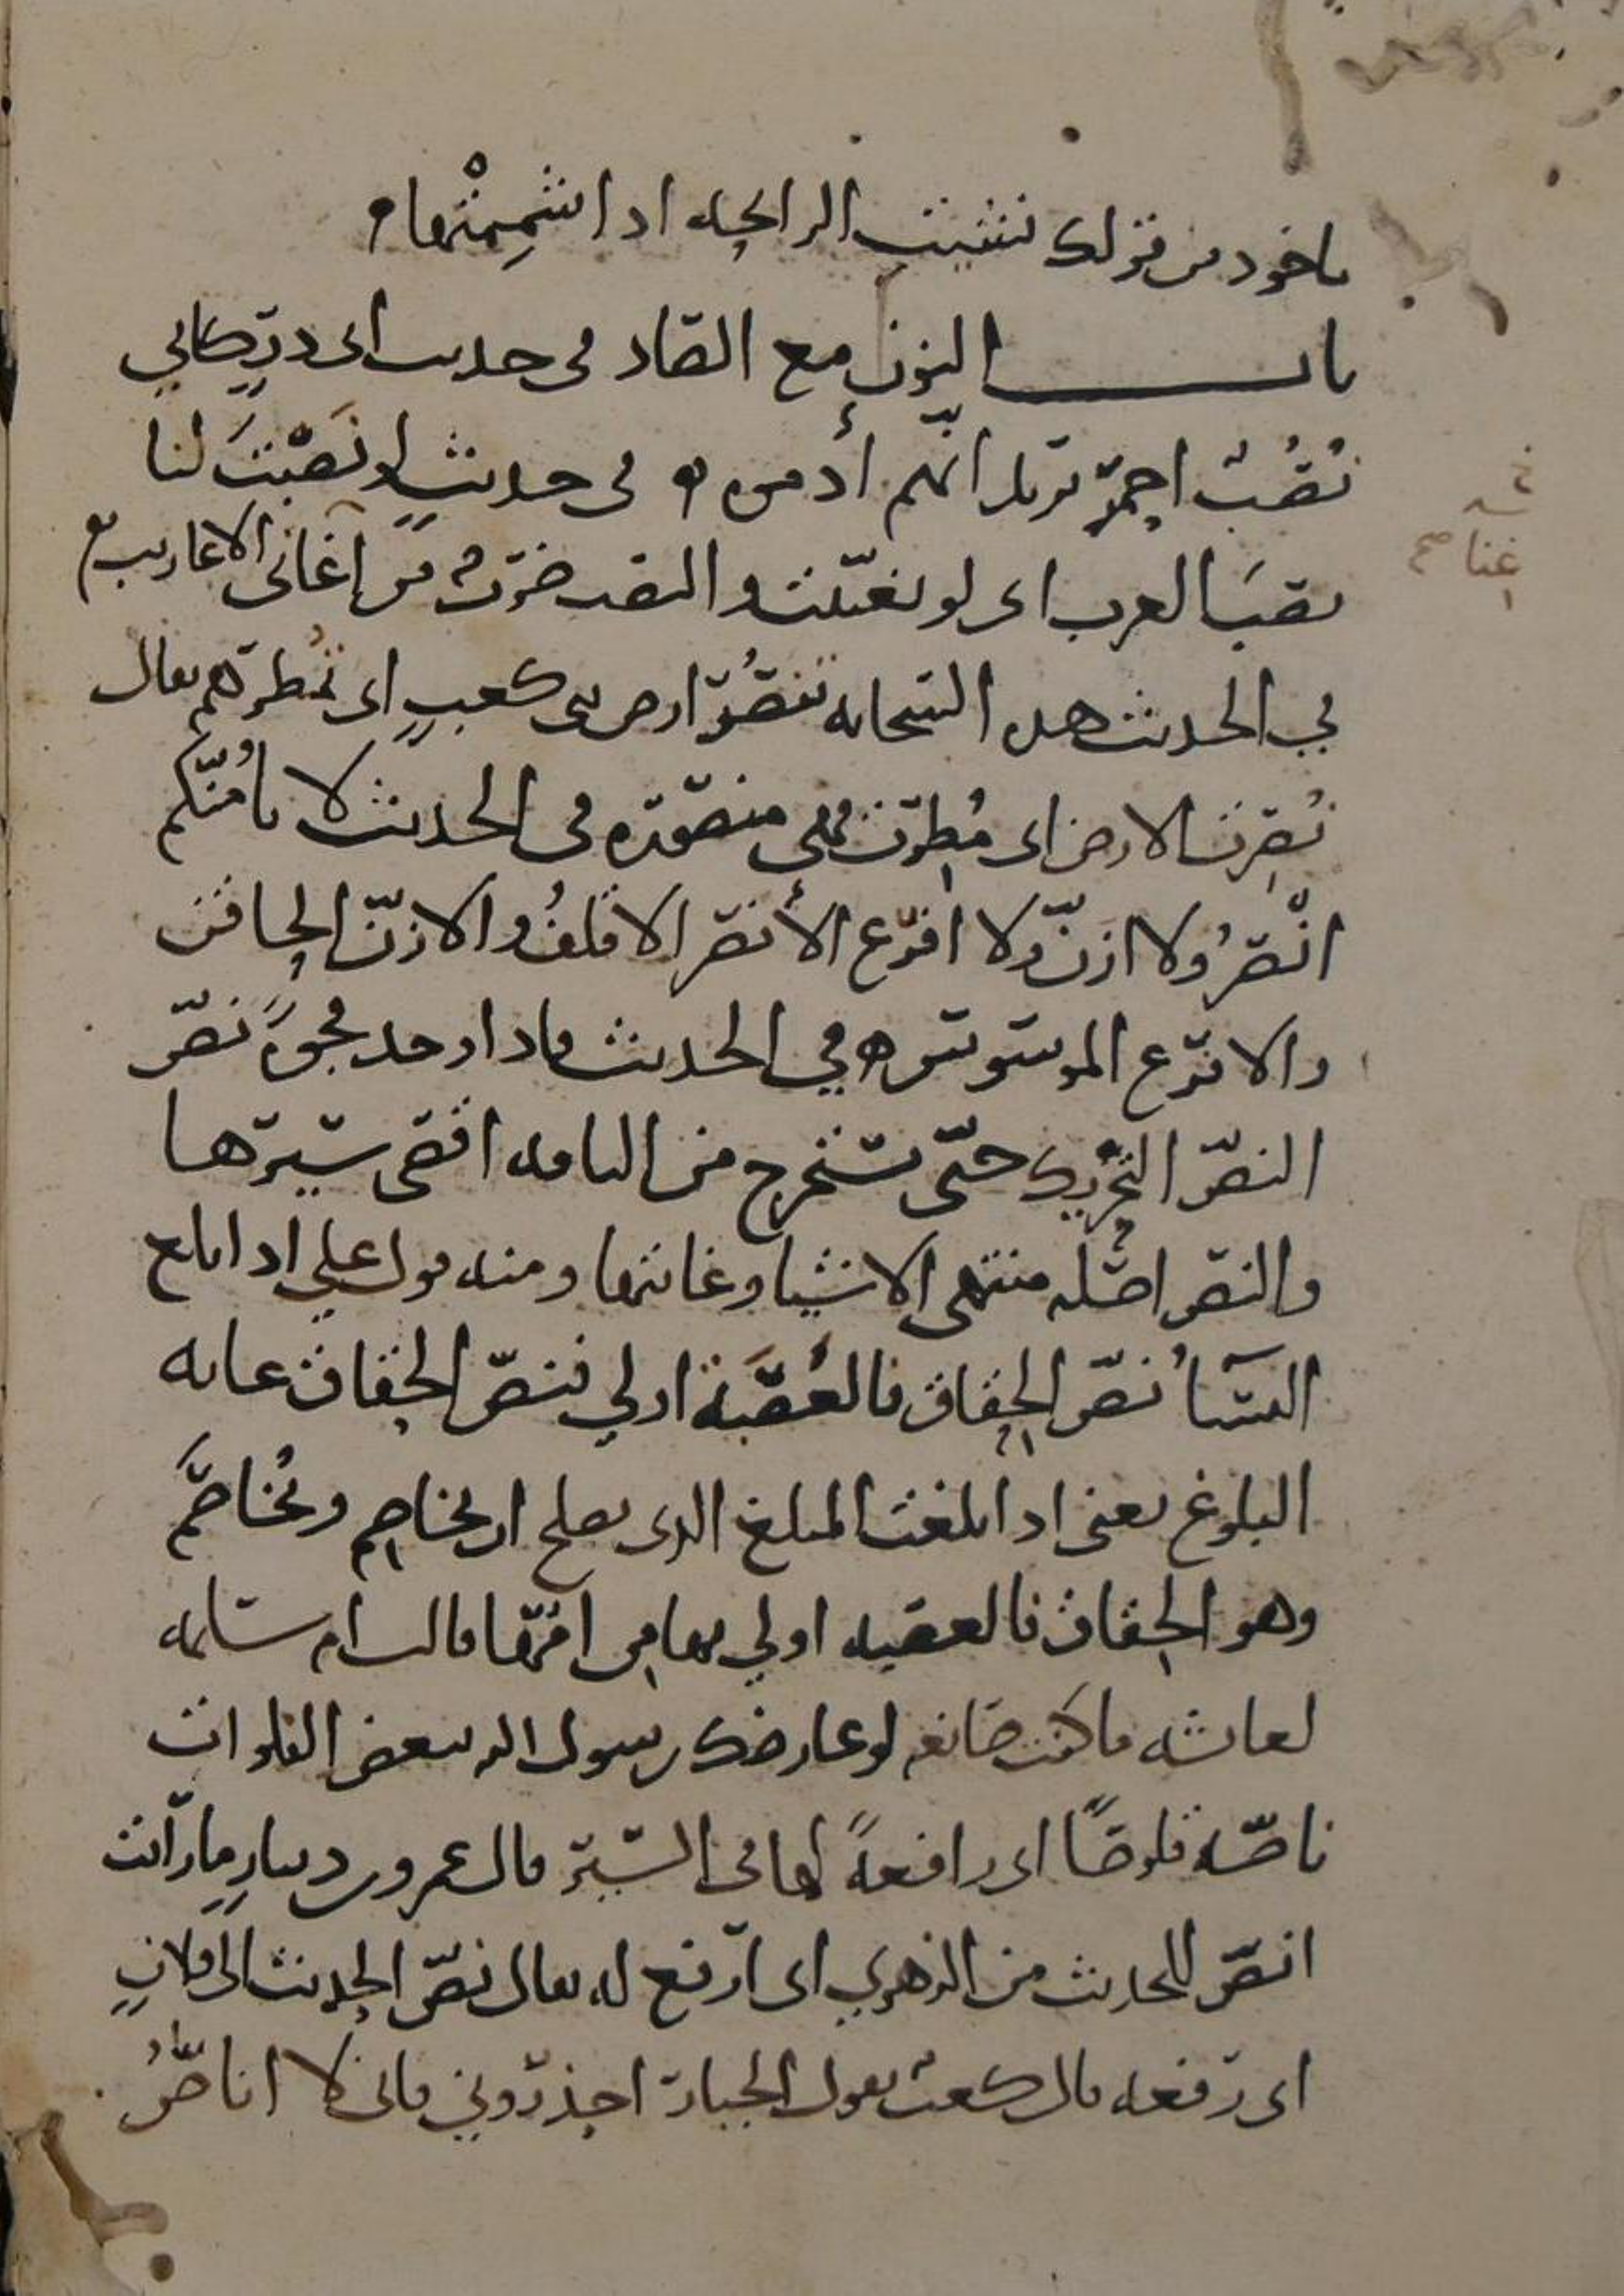 ماخوذ من قولك نشيت الرائحه اذا شمِمْتها ه
باب النون مع الصاد في حديث ابى ذرٍ كاني
نُصُبٌ احمرّ يريد انهم أدموه ه في حديثٍ لو نَصَبْتَ لنا
نصبَ العرب اى لو تغنّيت والنصب ضربٌ من اغاني الاعاريب ه
في الحديث هذه السّحابه تنصُرُ ارض بنى كعبٍ اى تُمطرهم يقال
نُصِرت الارض اى مُطِرت فهى منصوره في الحديث لا يأمُنّكم
انْصَرُ ولا ازنّ ولا افرع الأنصر الاقلفُ والازنّ الحاقن
والافرع الموسوس ه في الحديث فاذا وجد فجوةً نصّ
النصّ التحريك حتّى تستخرج من الناقه اقصى سيرها
والنص اصله منتهى الاشيا وغايتها ومنه قول علي اذا بلغ
النسآُ نصّ الحِقاق فالعُصَبَة اولي فنصّ الحقاق غايه
البلوغ يعنى اذا بلغت المبلغ الذى يصلح ان تخاصِم وتُخاصَم
وهو الحِقاق فالعصبه اولي بها من امّها قالت ام سلمه
لعائشه ما كنت صانعه لو عارضك رسول الله ببعض الفلوات
ناصّه قلوصًا اى رافعةً لها في السّير قال عمرو بن دينارٍ ما رايت
انصّ للحديث من الزهري اى ارفع له يقال نصّ الحديث الى فلانٍ
اى رفعه قال كعبٌ يقول الجبار احذروني فانى لا اناصُّ
غنا صح